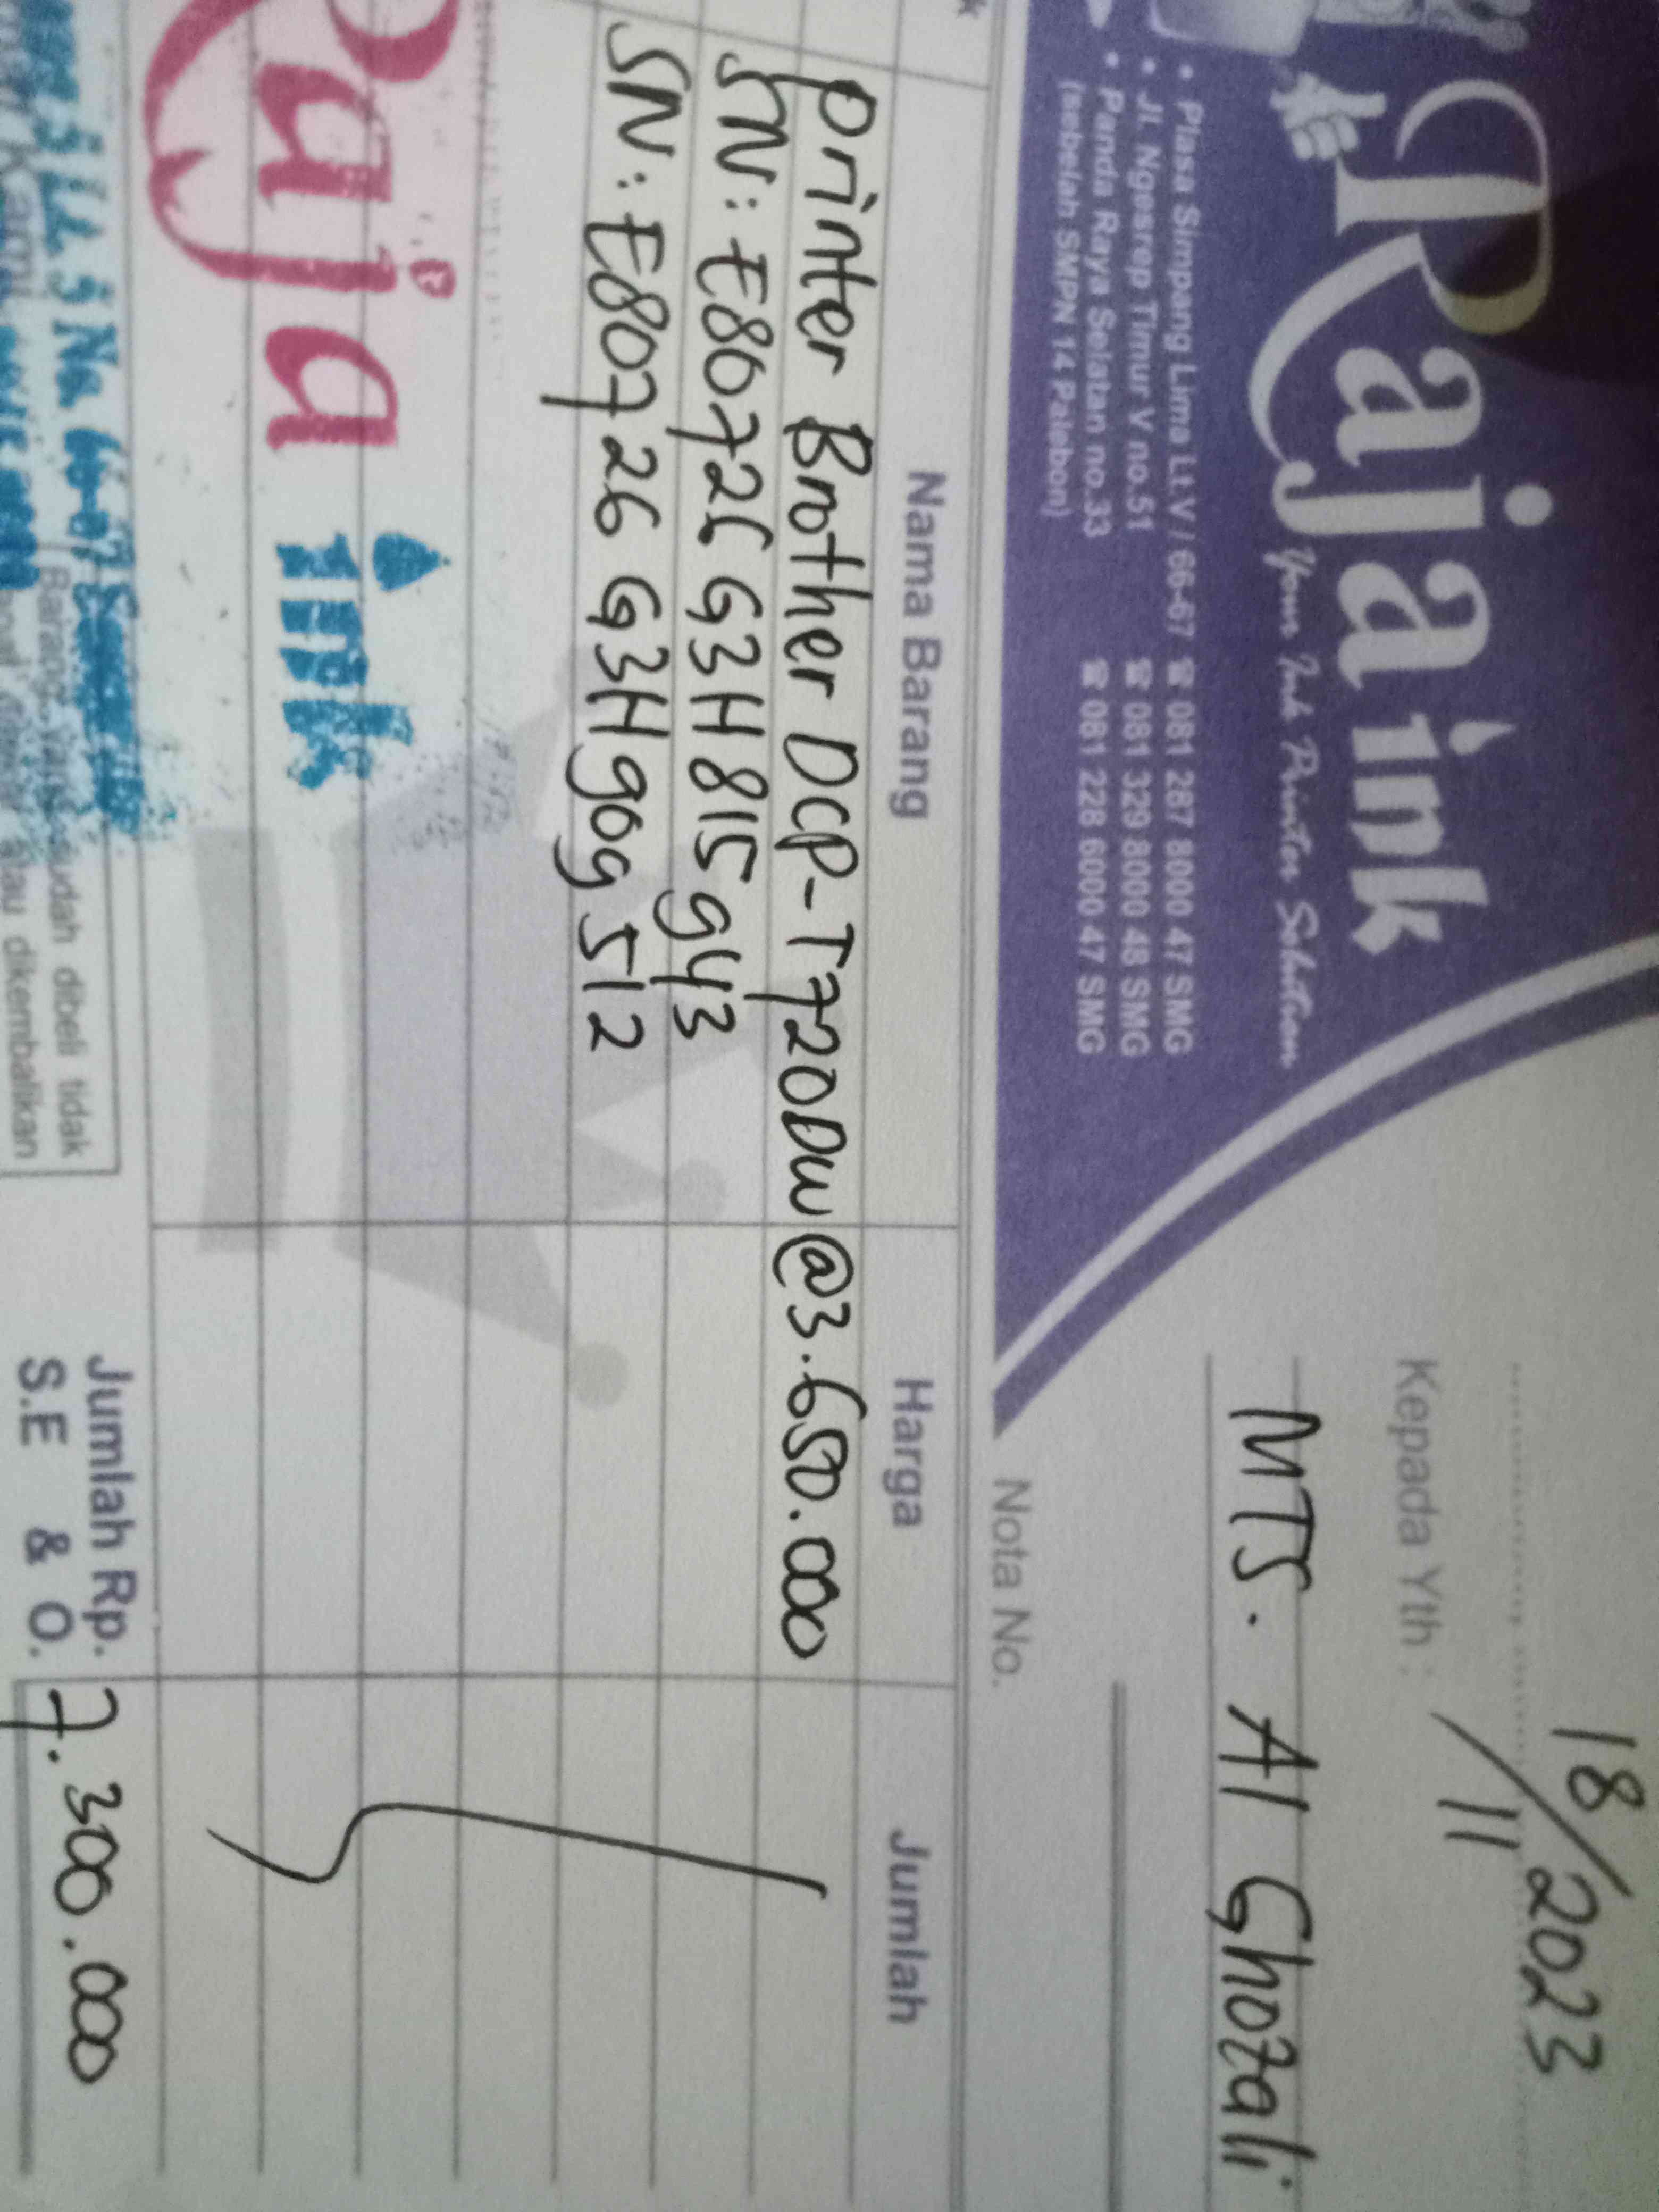 Raja ink
Your Ink Printer Solution
• Plasa Simpang Lima Lt.V / 66-67 ☎ 081 287 8000 47 SMG
• Jl. Ngesrep Timur V no.51 ☎ 081 329 8000 48 SMG
• Panda Raya Selatan no.33 ☎ 081 228 6000 47 SMG
(sebelah SMPN 14 Palebon)
18/11 2023
Kepada Yth :
MTS. Al Ghozali
Nota No.
Nama Barang Harga Jumlah
Printer Brother DCP-T720DW @3.650.000
SN: E80726G3H815943
SN: E80726G3H909512
Raja ink
Jumlah Rp. 7.300.000
S.E & O.
sudah dibeli tidak
atau dikembalikan